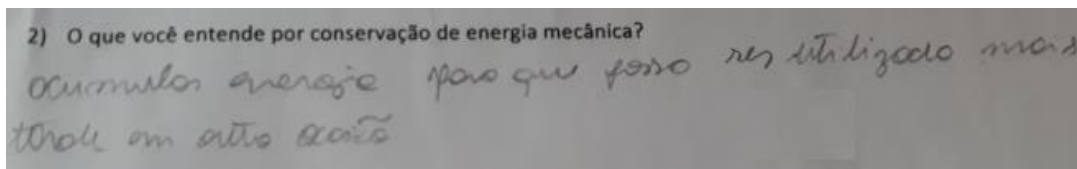 2) O que você entende por conservação de energia mecânica?
acumular energia para que possa ser utilizado mais
tarde em outra